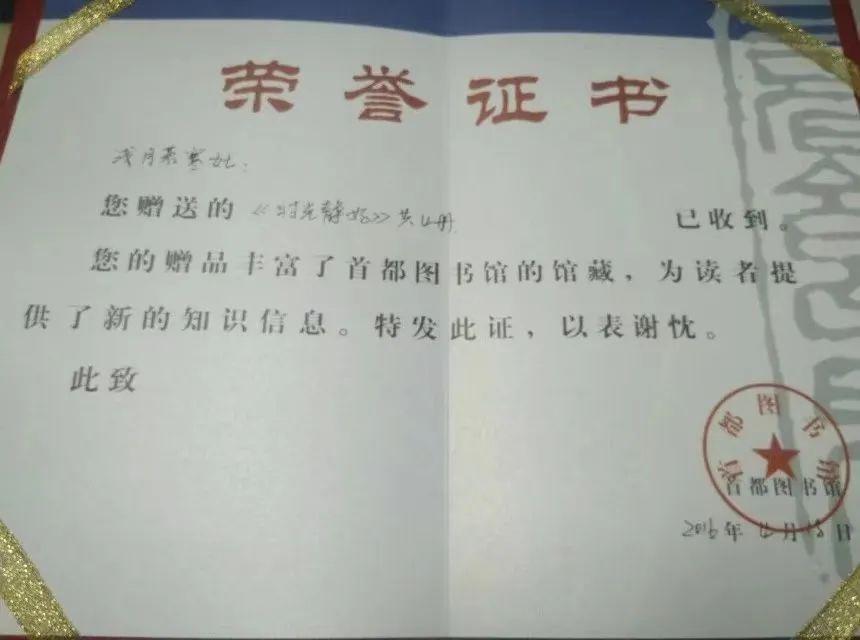 荣誉证书
您赠送的《时光静好》共4册 已收到。
您的赠品丰富了首都图书馆的馆藏，为读者提
供了新的知识信息。特发此证，以表谢忱。
此致
首都图书馆
首都图书馆
2016年4月18日